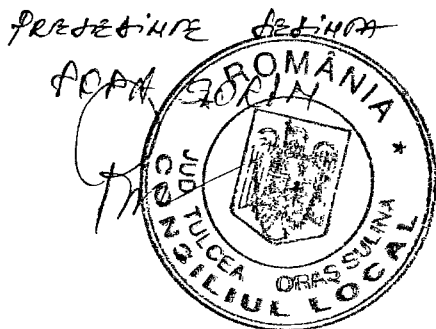 PREȘEDINTE ȘEDINȚĂ
SORIN
ROMÂNIA *
CONSILIUL LOCAL
JUD. TULCEA ORAȘ SULINA